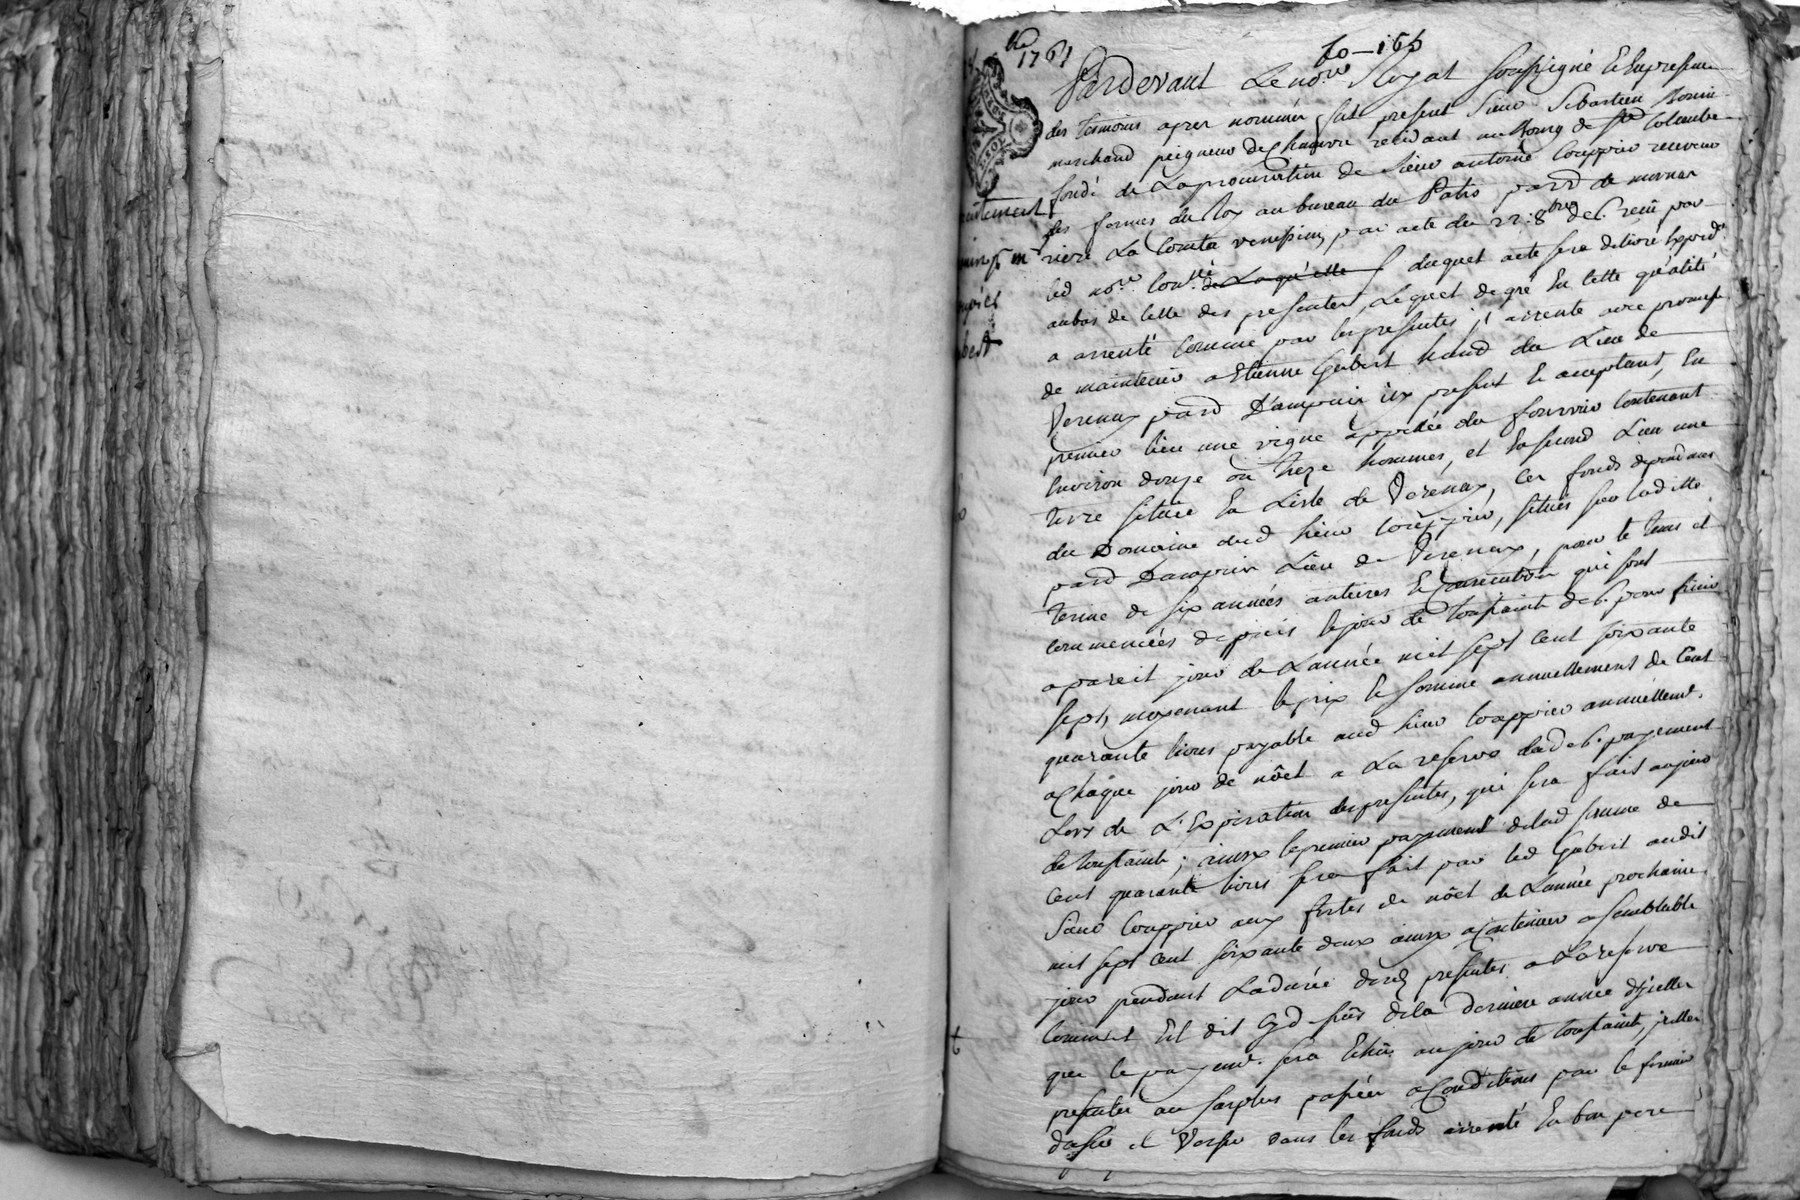 1761
fo - 165
Pardevant Le no.re Royal soussigné Et En presence
des temoins apres nommés fut present Sieur Sebastien Bonin
marchand peigneur de Chanvre residant au Bourg de Ste Colombe
fondé de La procuration de Sieur antoine Couppier receveur
des fermes du roy au bureau du Patis par.d de mornan
riere La Comta venessin, par acte du 22: 8bre de6. receu par
led no.re de Laquelle duquel acte sera delivré Exped.
au bas de celle des presentes, Lequel de gré En cette qualité
a arrenté comme par les presentes il arrente avec promesse
de maintenir a Etienne Gabert du Lieu de
Verenay par.d D'ampuis icy present Et acceptant, En
premier lieu une vigne appellée du fournio Contenant
Environ douze ou treze hommes, et En second Lieu une
terre située En Liste de Verenay, Ces fonds dependans
du Domaine dud sieur Couppier, situés sur laditte
par.d Dampuis Lieu de Verenay, pour le tems et
terme de six années antieres Et Consecutives qui sont
commencées depuis le jour de toussaints de6. pour finir
a pareil jour de L'année mil sept cent soixante
sept, moyenant le prix Et somme annuellement de Cent
quarante livres payable aud sieur Couppier annuellemt.
a Chaque jour de nôel a La reserve dud 6. payement
Lors de L'Expiration des presentes, qui sera fait au jour
de toussaints; ainsy le premier payement de lad somme de
Cent quarante livres sera fait par led Gabert audit
Sieur Couppier aux festes de nôel de L'année prochaine
mil sept cent soixante deux ainsy a Continuer a semblable
jour pendant La durée des presentes a La reserve
comme Il dit Cyd sus de la derniere année d'jcelles
que le payemt. sera Echû au jour de toussaints, jcelles
presentes au surplus passées a Conditions par le fermier
d'user et Verser dans les fonds arrenté En bon pere